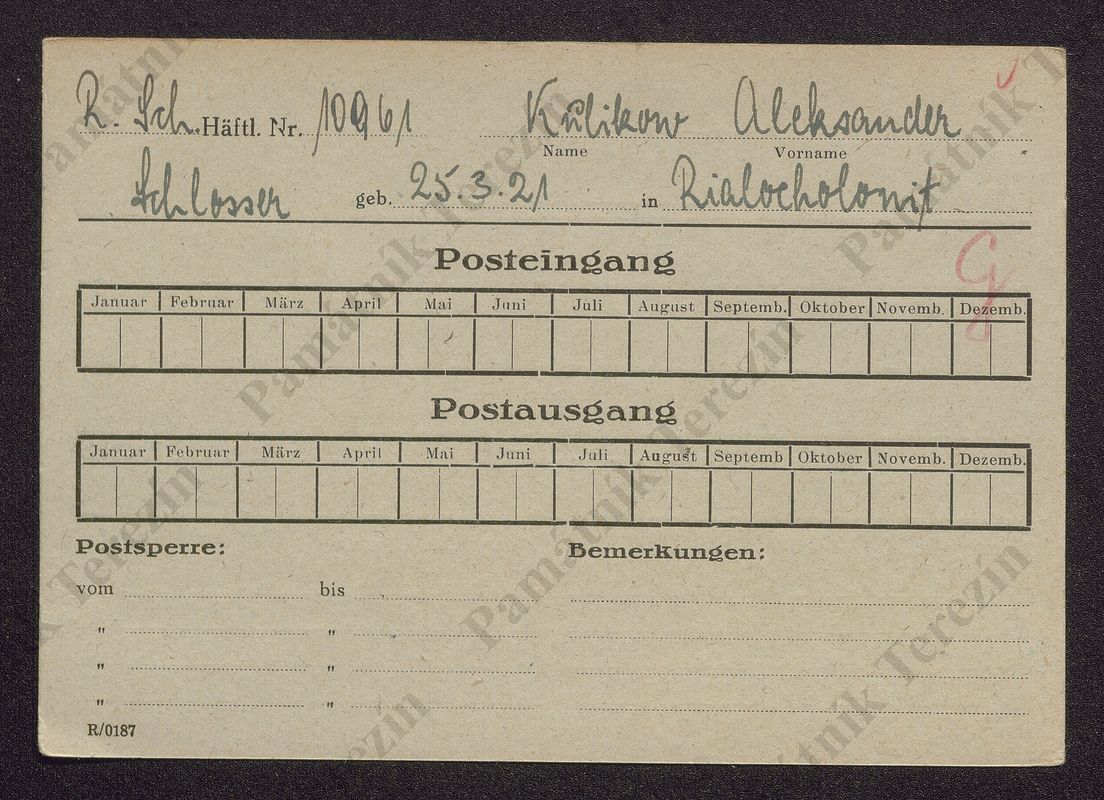 R. Sch. Häftl. Nr. 10961 Kulikow Aleksander
Name Vorname
Schlosser geb. 25.3.21 in Rialocholomit
G
Posteingang
Januar Februar März April Mai Juni Juli August Septemb. Oktober Novemb. Dezemb.
Postausgang
Januar Februar März April Mai Juni Juli August Septemb Oktober Novemb. Dezemb.
Postsperre: Bemerkungen:
vom bis
" "
" "
" "
R/0187
Památník Terezín